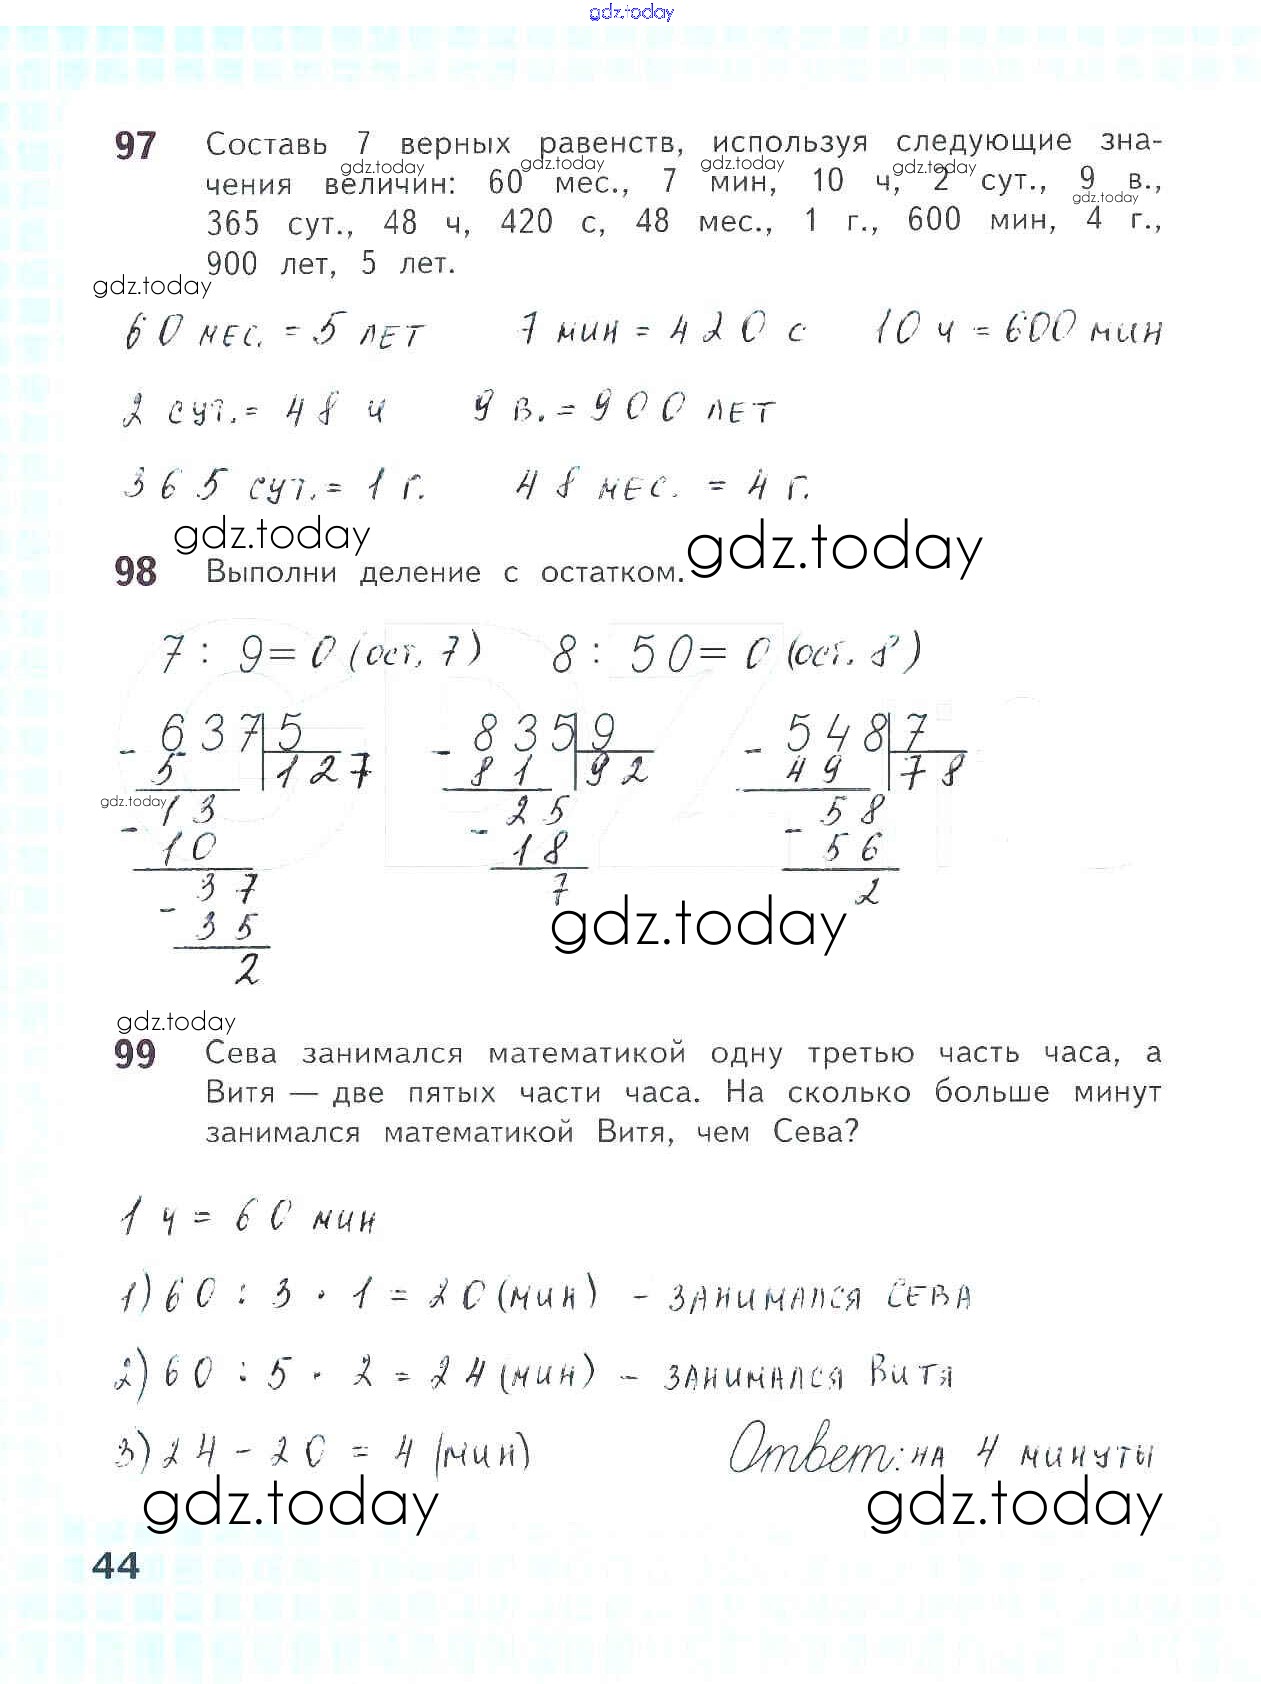 gdz.today
97 Составь 7 верных равенств, используя следующие зна-
gdz.today gdz.today gdz.today gdz.today
чения величин: 60 мес., 7 мин, 10 ч, 2 сут., 9 в.,
gdz.today
365 сут., 48 ч, 420 с, 48 мес., 1 г., 600 мин, 4 г.,
900 лет, 5 лет.
gdz.today
60 мес. = 5 лет 7 мин = 420 с 10 ч = 600 мин
2 сут. = 48 ч 9 в. = 900 лет
365 сут. = 1 г. 48 мес. = 4 г.
gdz.today gdz.today
98 Выполни деление с остатком.
7 : 9 = 0 (ост. 7) 8 : 50 = 0 (ост. 8)
- 637 5 - 835 9 - 548 7
5 127 81 92 49 78
gdz.today
- 13 - 25 - 58
10 18 56
- 37 7 2
35
gdz.today
2
gdz.today
99 Сева занимался математикой одну третью часть часа, а
Витя — две пятых части часа. На сколько больше минут
занимался математикой Витя, чем Сева?
1 ч = 60 мин
1) 60 : 3 · 1 = 20 (мин) - занимался Сева
2) 60 : 5 · 2 = 24 (мин) - занимался Витя
3) 24 - 20 = 4 (мин) Ответ: на 4 минуты
gdz.today gdz.today
44